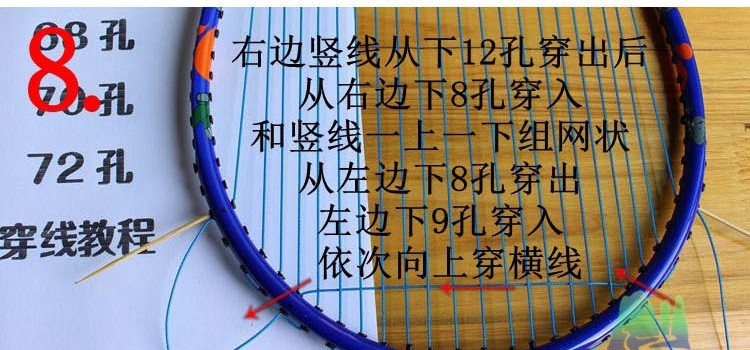 8.
68孔
70孔
72孔
穿线教程
右边竖线从下12孔穿出后
从右边下8孔穿入
和竖线一上一下组网状
从左边下8孔穿出
左边下9孔穿入
依次向上穿横线